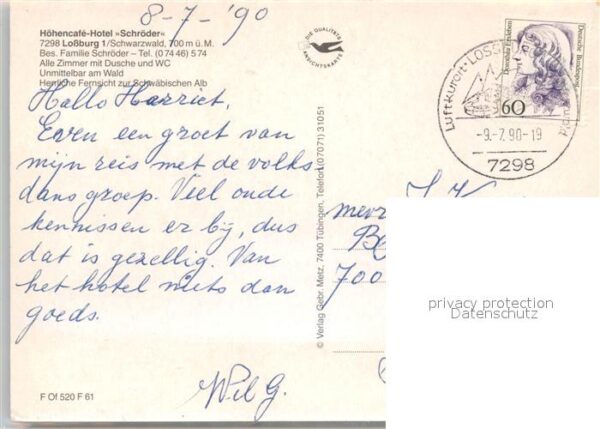 8-7-'90
Höhencafé-Hotel »Schröder«
7298 Loßburg 1/Schwarzwald, 700 m ü. M.
Bes. Familie Schröder – Tel. (0 74 46) 5 74
Alle Zimmer mit Dusche und WC
Unmittelbar am Wald
Herrliche Fernsicht zur Schwäbischen Alb
Hallo Harriet,
Even een groet van
mijn reis met de volks
dans groep. Veel oude
kennissen er bij, dus
dat is gezellig. Van
het hotel niets dan
goeds.
Wil G.
F Of 520 F 61
© Verlag Gebr. Metz, 7400 Tübingen, Telefon (0 70 71) 3 10 51
DIE QUALITÄTS
ANSICHTSKARTE
Deutsche Bundespost
60
Luftkurort
-9.-7.90-19
7298
mevr
700
privacy protection
Datenschutz